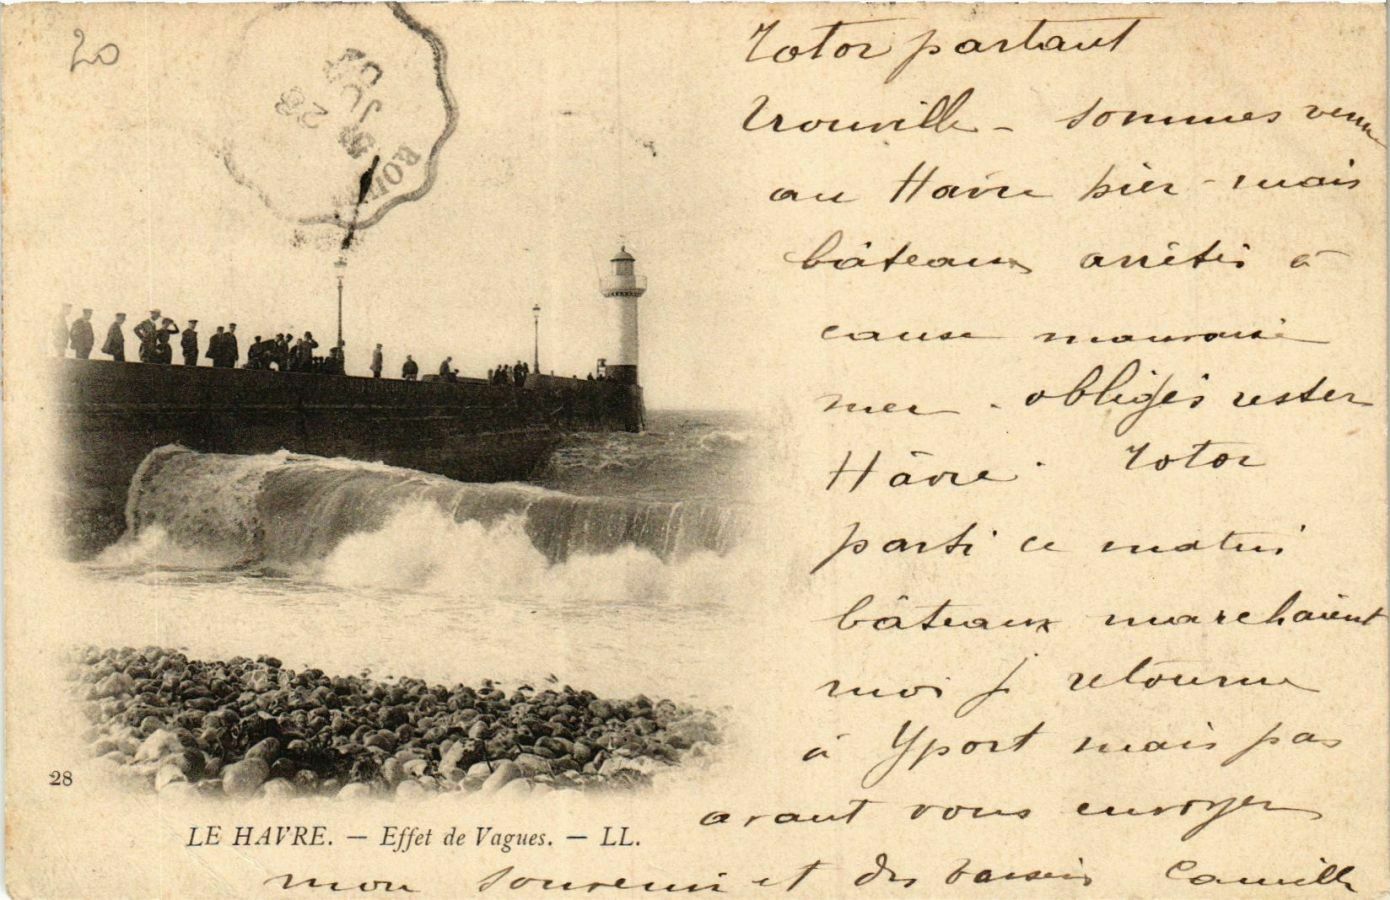 20
28
JUIL
Totor partant
Trouville - sommes venu
au Havre hier - mais
bâteaux arrêtés à
cause mauvaise
mer - obligés rester
Hâvre. Totor
parti ce matin
bâteaux marchaient
moi j retourne
à Yport mais pas
avant vous envoyer
mon souvenir et des baisers Camille
28
LE HAVRE. — Effet de Vagues. — LL.